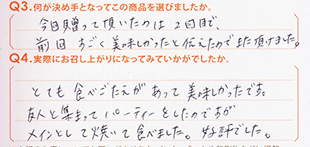 Q3.何が決め手となってこの商品を選びましたか。
今日贈って頂いたのは2回目で、
前回すごく美味しかったと伝えたのでまた頂けました。
Q4.実際にお召し上がりになってみていかがでしたか。
とても食べごたえがあって美味しかったです。
友人と集まってパーティーをしたのですが
メインとして焼いて食べました。好評でした。